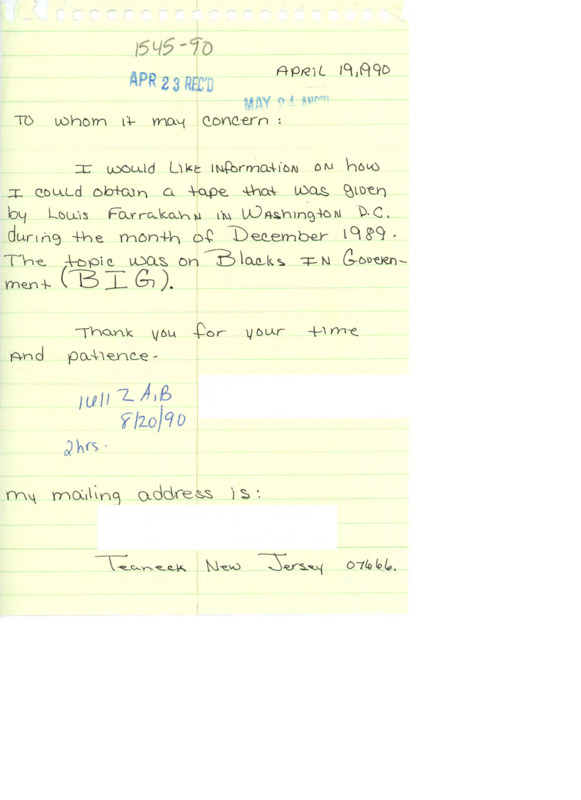 1545-90
APRIL 19, 1990
APR 23 REC'D
MAY 24
TO whom it may concern:
I would Like information on how
I could obtain a tape that was given
by Louis Farrakahn in Washington D.C.
during the month of December 1989.
The topic was on Blacks IN Govern-
ment (BIG).
Thank you for your time
And patience.
Z A,B
8/20/90
2 hrs.
my mailing address is:
Teaneck New Jersey 07666.